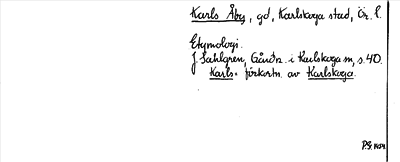 Karls Åby, gd, Karlskoga stad, Ör. l.
Etymologi.
J. Sahlgren, Gårdn. i Karlskoga sn, s. 40.
Karls- förkortn. av Karlskoga.